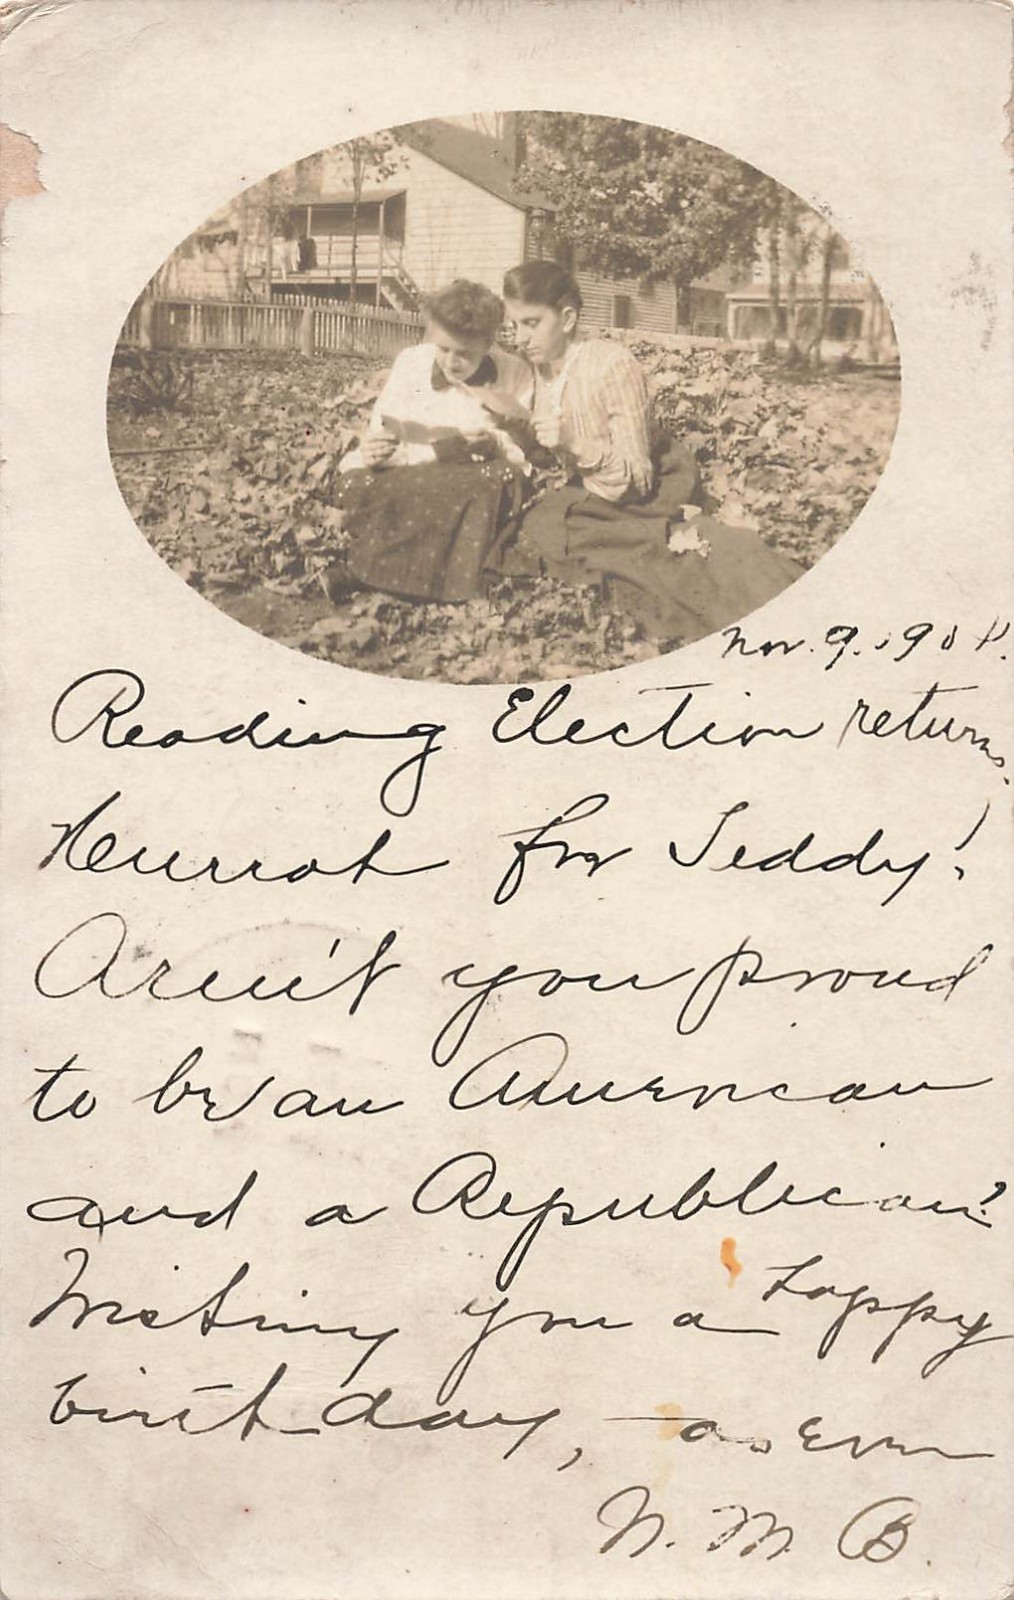 Nov. 9. 1904.
Reading Election returns.
Hurrah for Teddy!
Aren't you proud
to be an American
and a Republican?
Wishing you a happy
birthday, as ever
N. M. B.